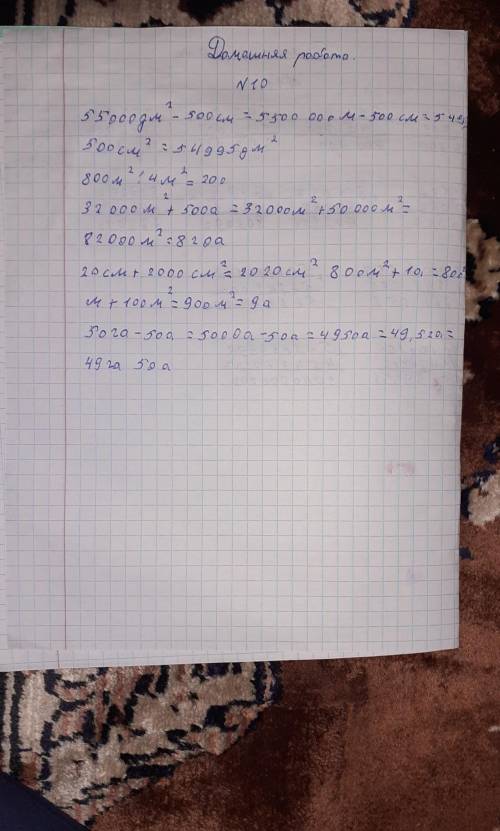 Домашняя работа.
N10
55000дм² - 500см = 5500 000м - 500 см = 549
500см² = 54995дм²
800м² : 4м² = 200
32000м² + 500а = 32000м² + 50 000м² =
82000м² = 820а
20см + 2000 см² = 2020см² 800м² + 1а = 800
м + 100м² = 900м² = 9а
50га - 50а = 5000а - 50а = 4950а = 49,5га =
49га 50а